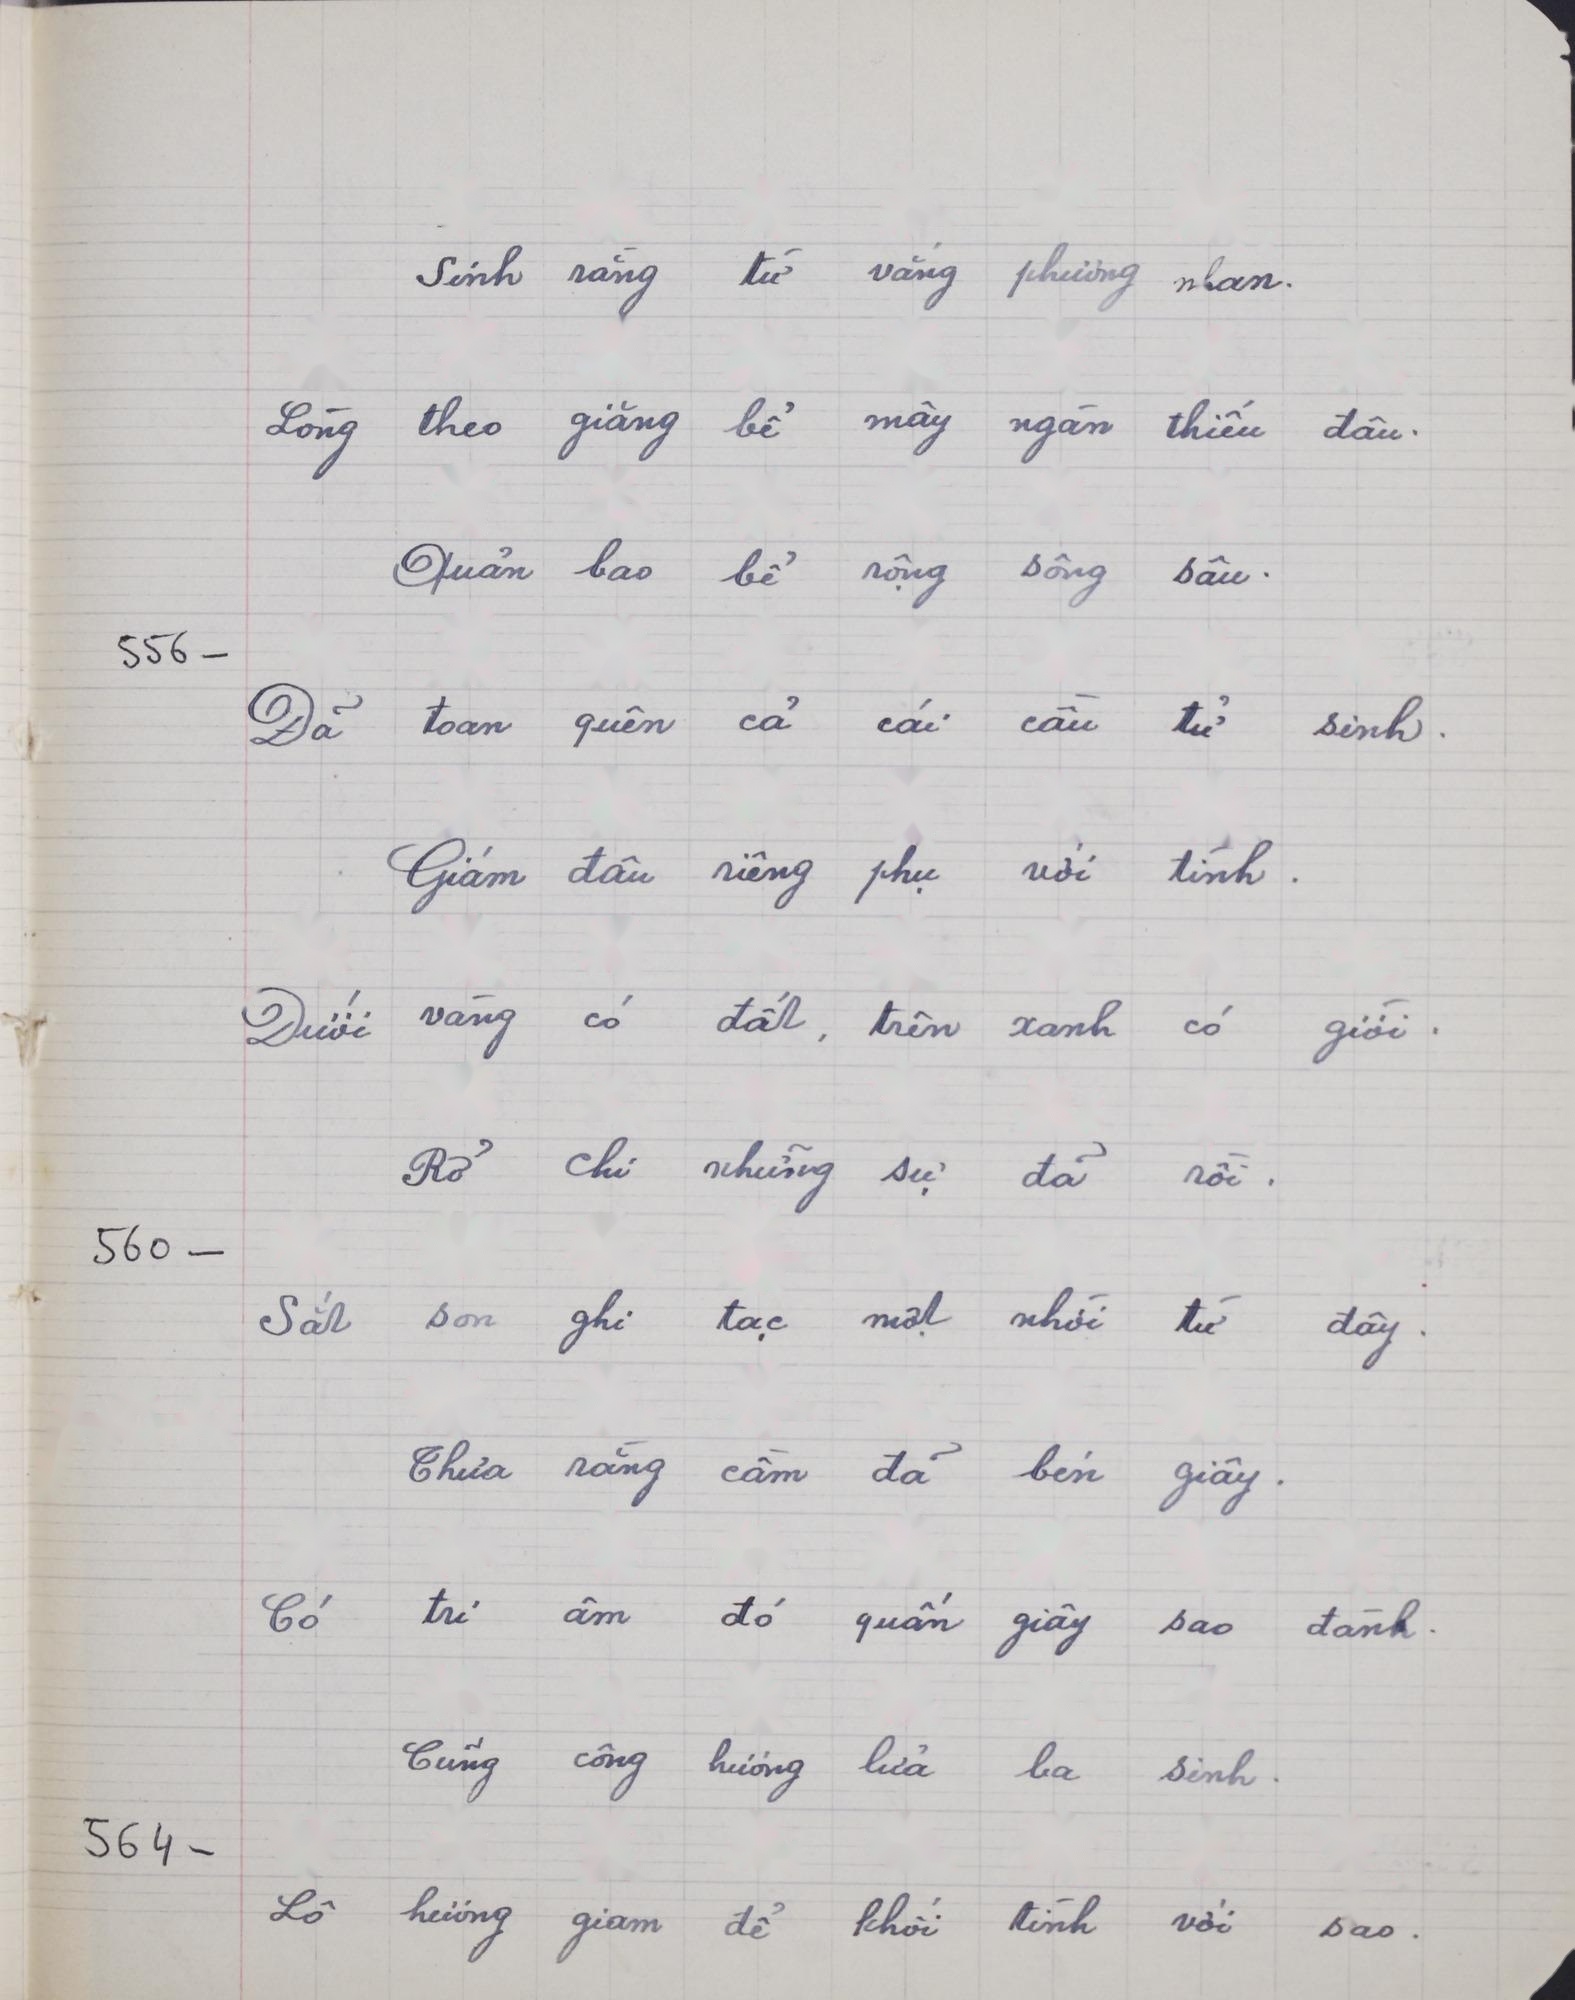 Sinh rằng từ vắng phương nhan.
Lòng theo giăng bể mây ngàn thiếu đâu.
Quản bao bể rộng sông sâu.
556 –
Dã toan quên cả cái cầu tử sinh.
Giám đâu riêng phụ với tình.
Dưới vàng có đất, trên xanh có giời.
Rỡ chi những sự đã rồi.
560 –
Sắt son ghi tạc một nhời từ đây.
Thưa rằng cầm đã bén giây.
Có tri âm đó quấn giây sao đành.
Cũng công hương lửa ba sinh.
564 –
Lò hương giam để khối tình với sao.